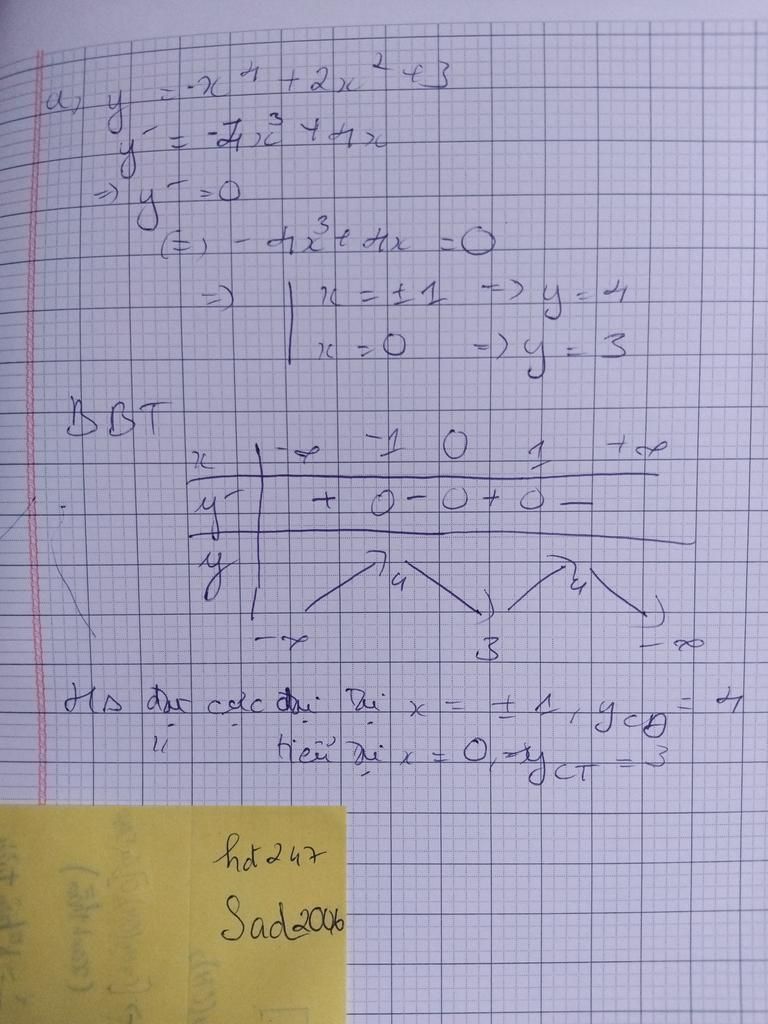 a, y = -x⁴ + 2x² + 3
y' = -4x³ + 4x
=> y' = 0
(=) -4x³ + 4x = 0
=> x = ±1 => y = 4
x = 0 => y = 3
BBT
x -∞ -1 0 1 +∞
y' + 0 - 0 + 0 -
y 4 4
-∞ 3 -∞
HS đạt cực đại tại x = ±1, yCĐ = 4
" tiểu tại x = 0, yCT = 3
hdt247
Sad2006